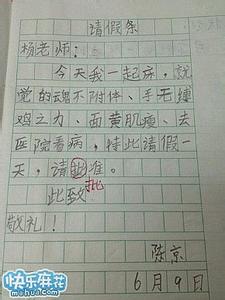 请假条
杨老师：
今天我一起床，就
觉的魂不附体、手无缚
鸡之力、面黄肌瘦、去
医院看病，特此请假一
天，请批准。
批
此致
敬礼！
陈京
6月9日
快乐麻花
mahua.com